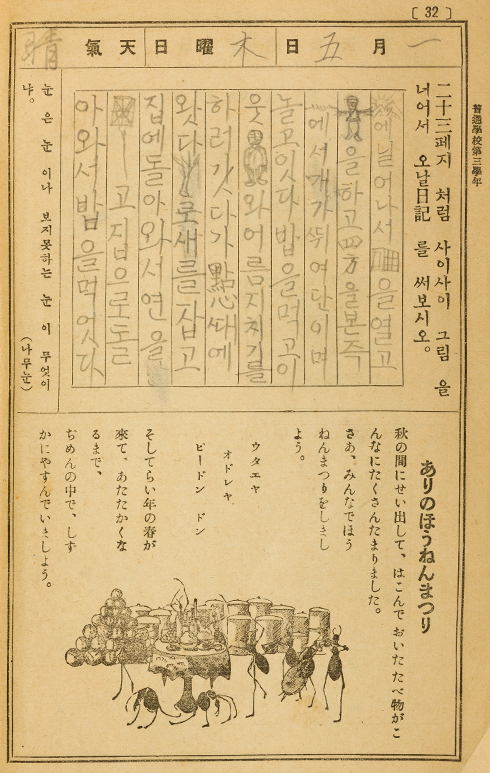 [ 32 ]
普通學校第三學年
一月五日 木曜日 天氣 晴
二十三페지 처럼 사이사이 그림 을
너어서 오날日記 를 써보시오。
에닐어나서 을열고
을하고四方을본즉
에서개가쒸여단이며
놀고잇다밥을먹고이
웃 와어름지치기를
하러갓다가點心때에
왓다 로새를잡고
집에돌아와서연을
고집으로도르
아와서밤을먹엇다
눈 은 눈 이나 보지못하는 눈 이 무엇이
냐。
(나무눈)
ありのほうねんまつり
秋の間にせい出して、はこんで おいた たべ物がこ
んなにたくさんたまりました。
さあ、みんなでほう
ねんまつりをしきし
よう。
ウタエヤ
オドレヤ
ピードン ドン
そしてらい年の春が
來て、あたたかくな
るまで、
ぢめんの中で、しず
かにやすんでいきしよう。